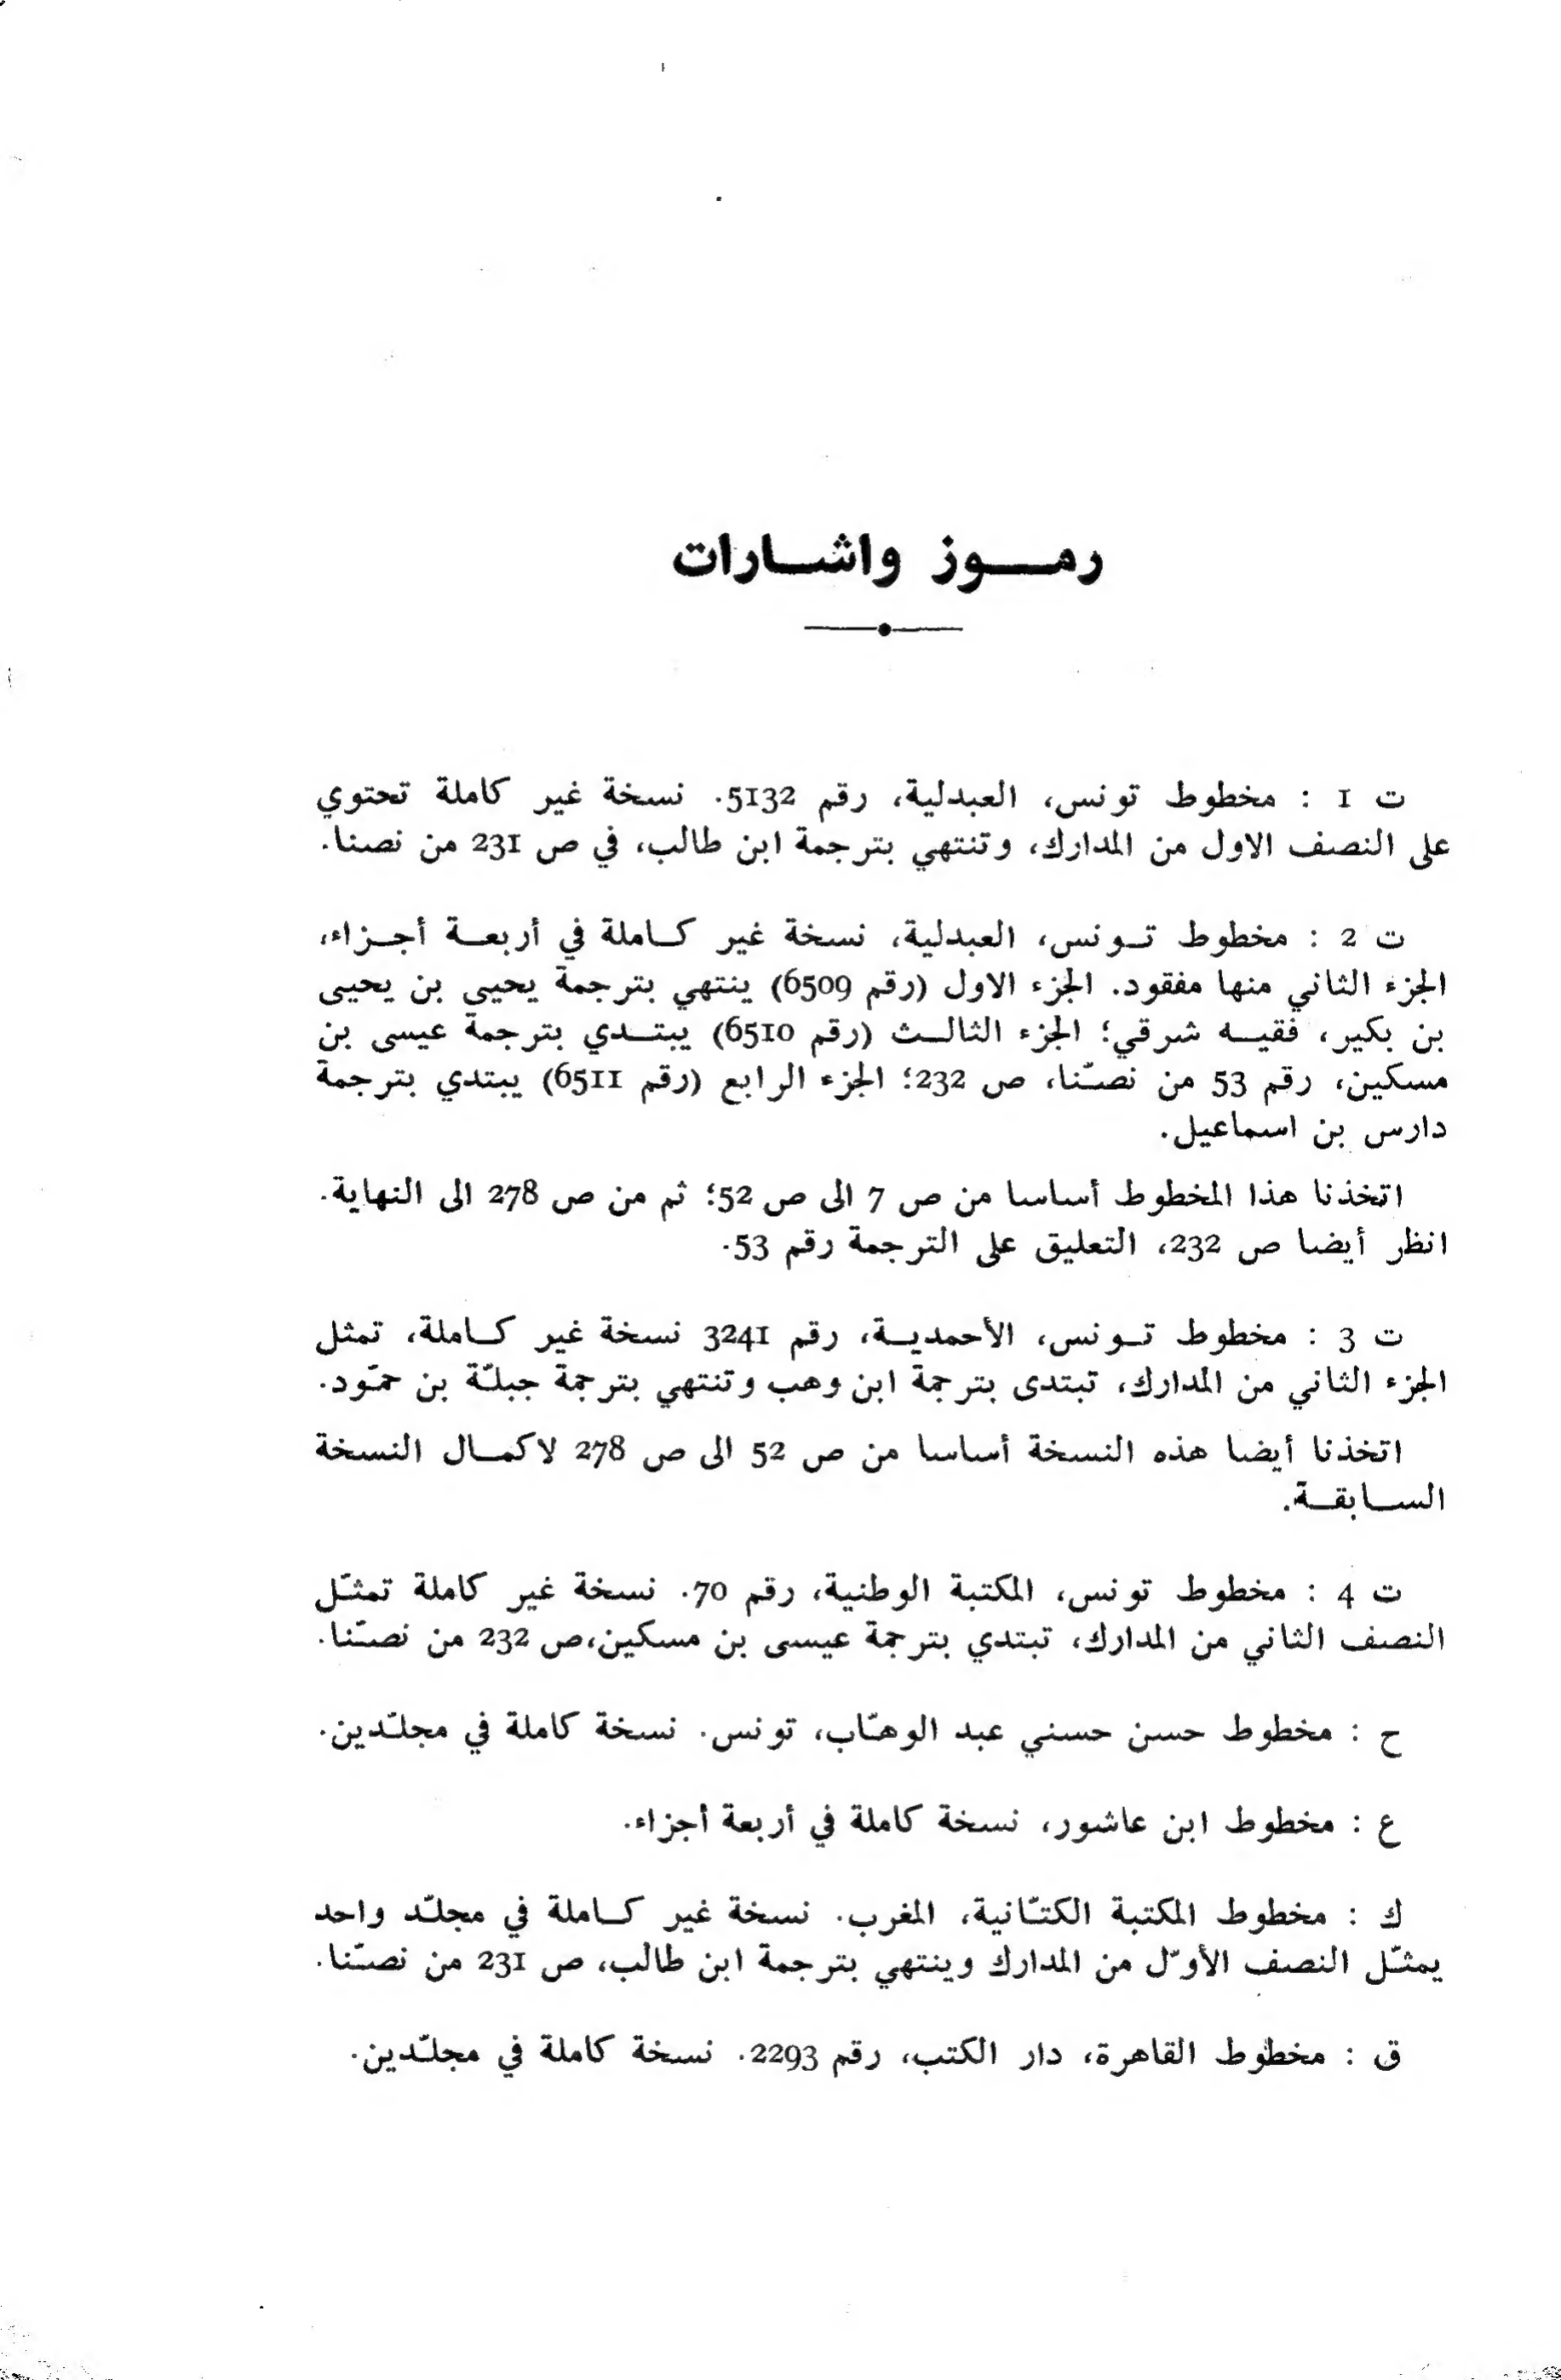 رموز واشارات
ت 1 : مخطوط تونس، العبدلية، رقم 5132. نسخة غير كاملة تحتوي
على النصف الاول من المدارك، وتنتهي بترجمة ابن طالب، في ص 231 من نصنا.
ت 2 : مخطوط تونس، العبدلية، نسخة غير كاملة في أربعة أجزاء،
الجزء الثاني منها مفقود. الجزء الاول (رقم 6509) ينتهي بترجمة يحيى بن يحيى
بن بكير، فقيه شرقي؛ الجزء الثالث (رقم 6510) يبتدي بترجمة عيسى بن
مسكين، رقم 53 من نصّنا، ص 232؛ الجزء الرابع (رقم 6511) يبتدي بترجمة
دارس بن اسماعيل.
اتخذنا هذا المخطوط أساسا من ص 7 الى ص 52؛ ثم من ص 278 الى النهاية.
انظر أيضا ص 232، التعليق على الترجمة رقم 53.
ت 3 : مخطوط تونس، الأحمدية، رقم 3241 نسخة غير كاملة، تمثل
الجزء الثاني من المدارك، تبتدى بترجمة ابن وهب وتنتهي بترجمة جبلّة بن حمّود.
اتخذنا أيضا هذه النسخة أساسا من ص 52 الى ص 278 لاكمال النسخة
السابقة.
ت 4 : مخطوط تونس، المكتبة الوطنية، رقم 70. نسخة غير كاملة تمثّل
النصف الثاني من المدارك، تبتدي بترجمة عيسى بن مسكين،ص 232 من نصّنا.
ح : مخطوط حسن حسني عبد الوهّاب، تونس. نسخة كاملة في مجلّدين.
ع : مخطوط ابن عاشور، نسخة كاملة في أربعة أجزاء.
ك : مخطوط المكتبة الكتّانية، المغرب. نسخة غير كاملة في مجلّد واحد
يمثّل النصف الأوّل من المدارك وينتهي بترجمة ابن طالب، ص 231 من نصّنا.
ق : مخطوط القاهرة، دار الكتب، رقم 2293. نسخة كاملة في مجلّدين.